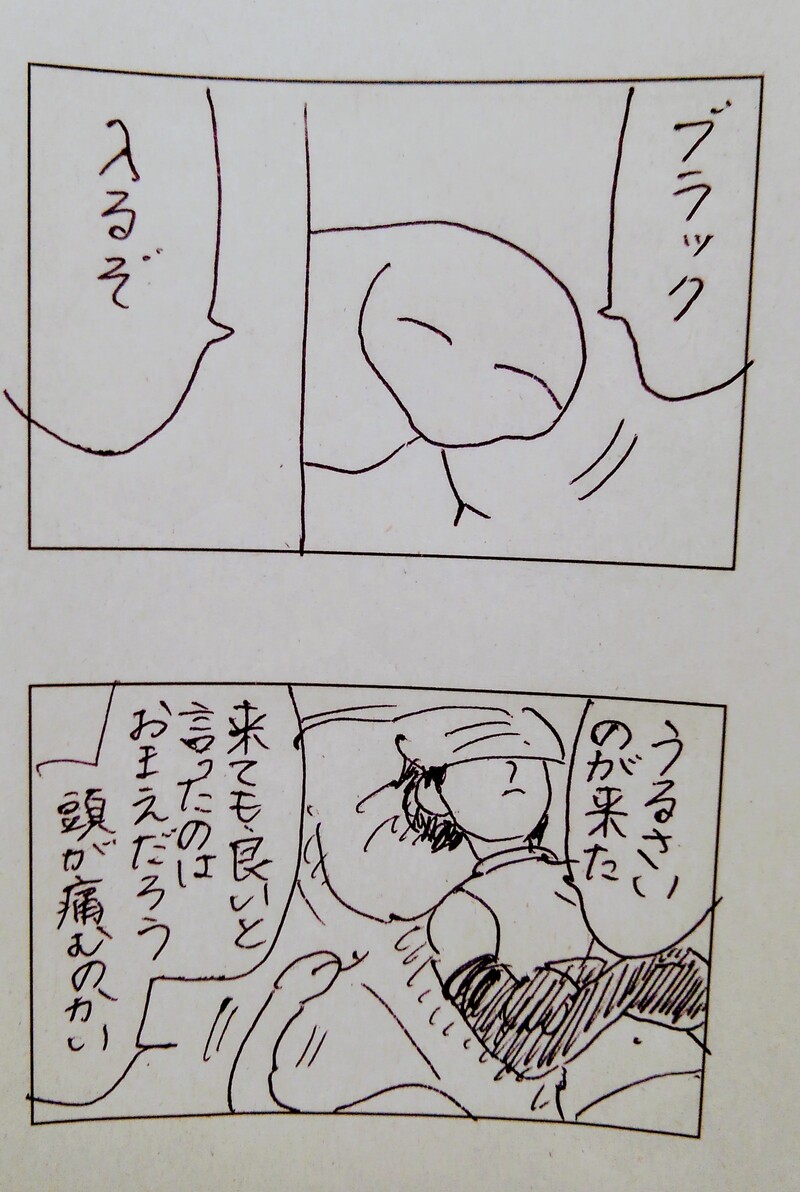 ブラック
入るぞ
うるさい
のが来た
来ても良いと
言ったのは
おまえだろう
頭が痛むのかい